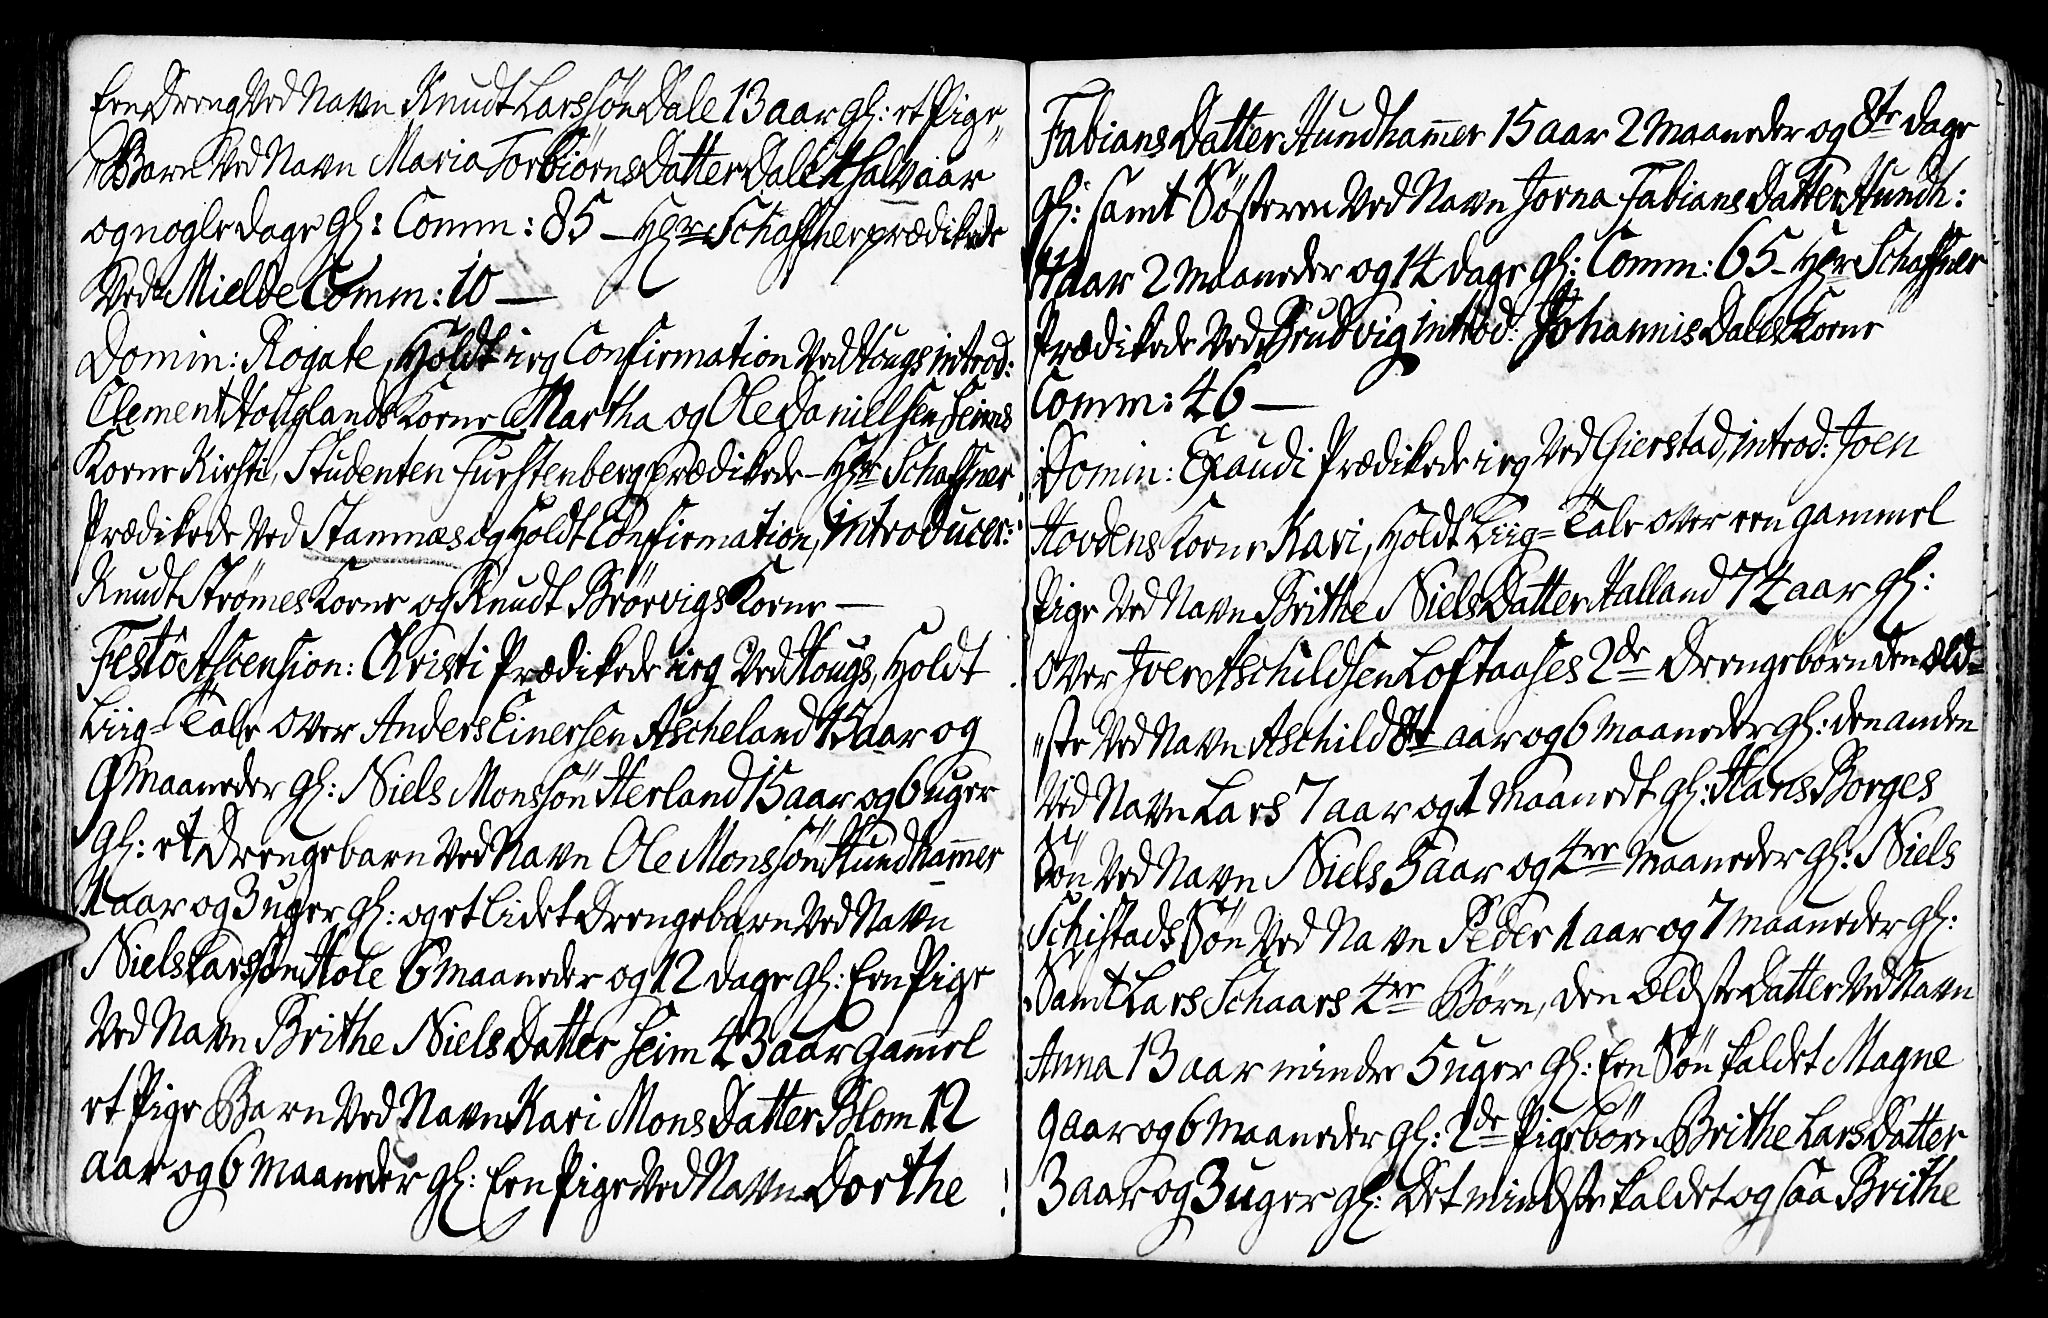 Een Dreng Ved Navn Knudt Larssøn Dale 13 aar gl: et Pige„
„Barn Ved Navn Maria Torbiørns Datter Dale 1 halv aar
og nogle dage gl: Comm: 85 – Hr Schaffner prædikede
Ved Mielde Comm: 10 –
Domin: Rogate, Holdt ieg Confirmation Ved Hougs introd:
Clement Houglands Kone Martha og Ole Danielsen Seims
Kone Kirsti, Studenten Furstenberg prædikede – Hr Schaffner
Prædikede Ved Stamnæs og Holdt Confirmation, introducer:
Knudt Strømes Kone og Knudt Brørvigs Kone –
Festo Ascension: Christi Prædikede ieg Ved Hougs, Holdt
Liig=Tale over Anders Einersen Ascheland 15 aar og
9 Maaneder gl: Niels Monssøn Herland 15 aar og 6 uger
gl: et Drengebarn Ved Navn Ole Monssøn Hundhammer
1 aar og 3 uger gl: og et lidet Drengebarn Ved Navn
Niels Larssøn Hole 6 Maaneder og 12 dage gl: Een Pige
Ved Navn Brithe Niels Datter Seim 43 aar gammel
et Pige Barn Ved Navn Kari Mons Datter Blom 12
aar og 6 Maaneder gl: Een Pige Ved Navn Dorthe
Fabians Datter Hundhammer 15 aar 2 Maaneder og 8te dage
gl: samt Søsteren Ved Navn Jorna Fabians Datter Hundh:
11 aar 2 Maaneder og 14 dage gl: Comm: 65 – Hr Schaffner
Prædikede Ved Brudvig introd: Johannis Dales Kone
Comm: 46 –
Domin: Exaudi Prædikede ieg Ved Gierstad, introd: Joen
Hovdens Kone Kari, Holdt Liig=Tale over een gammel
Pige Ved Navn Brithe Niels Datter Halland 74 aar gl:
over Iver Aschildsen Loftaases 2de Drengebørn den æld=
„ste Ved Navn Aschild 8te aar og 6 Maaneder gl: den anden
Ved Navn Lars 7 aar og 1 Maanedt gl: Hans Borges
Søn Ved Navn Niels 5 aar og 4re Maaneder gl: Niels
Schistads Søn Ved Navn Peder 1 aar og 7 Maaneder gl:
Samt Lars Schaars 4re Børn, den Ældste Datter Ved Navn
Anna 13 aar mindre 5 uger gl: Een Søn kaldet Magne
9 aar og 6 Maaneder gl: 2de Pigebørn Brithe Lars Datter
3 aar og 3 uger gl: Det mindste kaldet og saa Brithe